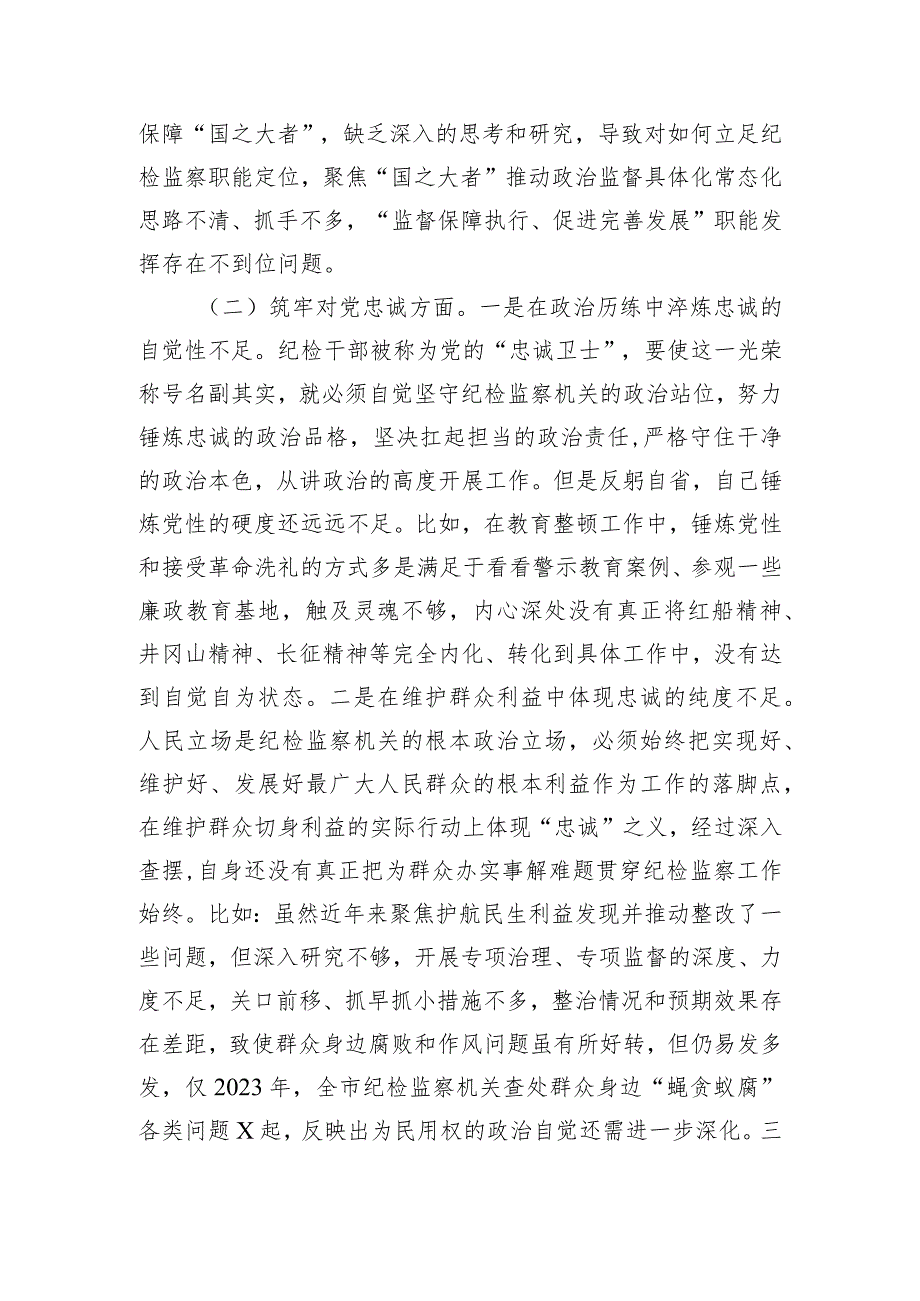 保障“国之大者”，缺乏深入的思考和研究，导致对如何立足纪
检监察职能定位，聚焦“国之大者”推动政治监督具体化常态化
思路不清、抓手不多，“监督保障执行、促进完善发展”职能发
挥存在不到位问题。
（二）筑牢对党忠诚方面。一是在政治历练中淬炼忠诚的
自觉性不足。纪检干部被称为党的“忠诚卫士”，要使这一光荣
称号名副其实，就必须自觉坚守纪检监察机关的政治站位，努力
锤炼忠诚的政治品格，坚决扛起担当的政治责任,严格守住干净
的政治本色，从讲政治的高度开展工作。但是反躬自省，自己锤
炼党性的硬度还远远不足。比如，在教育整顿工作中，锤炼党性
和接受革命洗礼的方式多是满足于看看警示教育案例、参观一些
廉政教育基地，触及灵魂不够，内心深处没有真正将红船精神、
井冈山精神、长征精神等完全内化、转化到具体工作中，没有达
到自觉自为状态。二是在维护群众利益中体现忠诚的纯度不足。
人民立场是纪检监察机关的根本政治立场，必须始终把实现好、
维护好、发展好最广大人民群众的根本利益作为工作的落脚点，
在维护群众切身利益的实际行动上体现“忠诚”之义，经过深入
查摆,自身还没有真正把为群众办实事解难题贯穿纪检监察工作
始终。比如：虽然近年来聚焦护航民生利益发现并推动整改了一
些问题，但深入研究不够，开展专项治理、专项监督的深度、力
度不足，关口前移、抓早抓小措施不多，整治情况和预期效果存
在差距，致使群众身边腐败和作风问题虽有所好转，但仍易发多
发，仅 2023 年，全市纪检监察机关查处群众身边“蝇贪蚁腐”
各类问题 X 起，反映出为民用权的政治自觉还需进一步深化。三